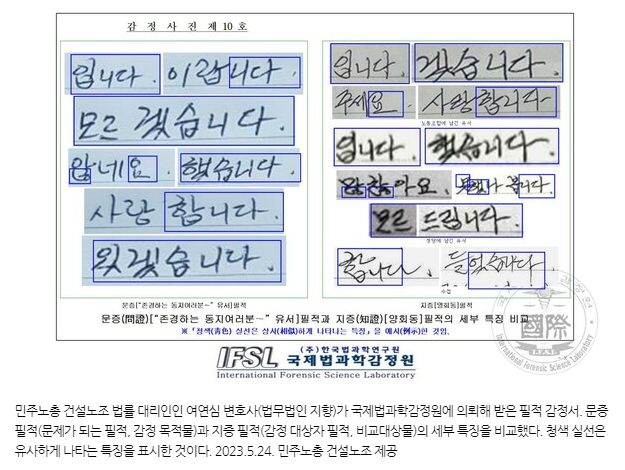 감 정 사 진 제 10 호
입니다. 이랍니다
모르겠습니다.
않네요 했습니다.
사랑합니다.
있겠습니다.
입니다. 겠습니다.
주세요 사랑합니다
노동조합에 남긴 유서
입니다. 했습니다.
않아요. 봅니다.
모르 드립니다.
정당에 남긴 유서
합니다 들었습니다
수첩
문증["존경하는 동지여러분~" 유서]필적
지증[양회동]필적
문증(問證)["존경하는 동지여러분~" 유서]필적과 지증(知證)[양회동]필적의 세부 특징 비교
※「청색(靑色) 실선은 상사(相似)하게 나타나는 특징」을 예시(例示)한 것임.
IFSL (주)한국법과학연구원
국제법과학감정원
International Forensic Science Laboratory
國際
민주노총 건설노조 법률 대리인인 여연심 변호사(법무법인 지향)가 국제법과학감정원에 의뢰해 받은 필적 감정서. 문증
필적(문제가 되는 필적, 감정 목적물)과 지증 필적(감정 대상자 필적, 비교대상물)의 세부 특징을 비교했다. 청색 실선은
유사하게 나타는 특징을 표시한 것이다. 2023.5.24. 민주노총 건설노조 제공